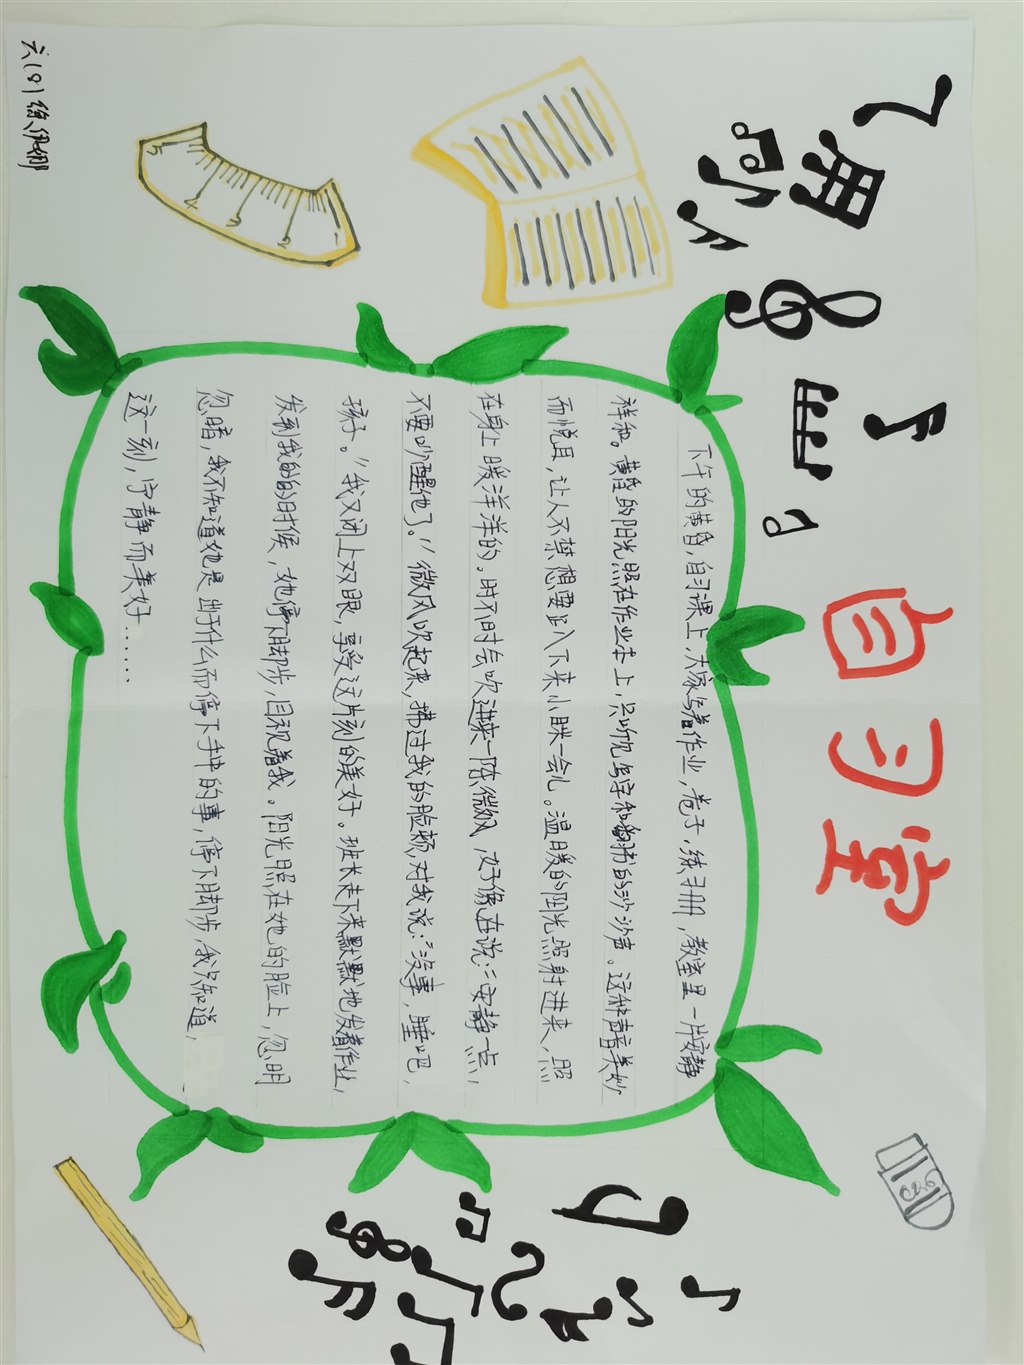 自习室
下午的黄昏，自习课上，大家写着作业，卷子，练习册，教室里一片安静
祥和。黄昏的阳光照在作业本上，只听见写字和翻书的沙沙声。这种声音美妙
而悦耳，让人不禁想要趴下来小眯一会儿。温暖的阳光照射进来，照
在身上暖洋洋的。时不时会吹进来一阵微风，好像在说：“安静一点，
不要吵醒他了。”微风吹起来，拂过我的脸颊，对我说：“没事，睡吧，
孩子。”我又闭上双眼，享受这片刻的美好。班长走下来默默地发着作业，
发到我的的时候，她停下脚步，目视着我。阳光照在她的脸上，忽明
忽暗，我不知道她是出于什么而停下手中的事，停下脚步，我只知道，
这一刻，宁静而美好……
六(8) 徐伊娜
5 4 3 2 1